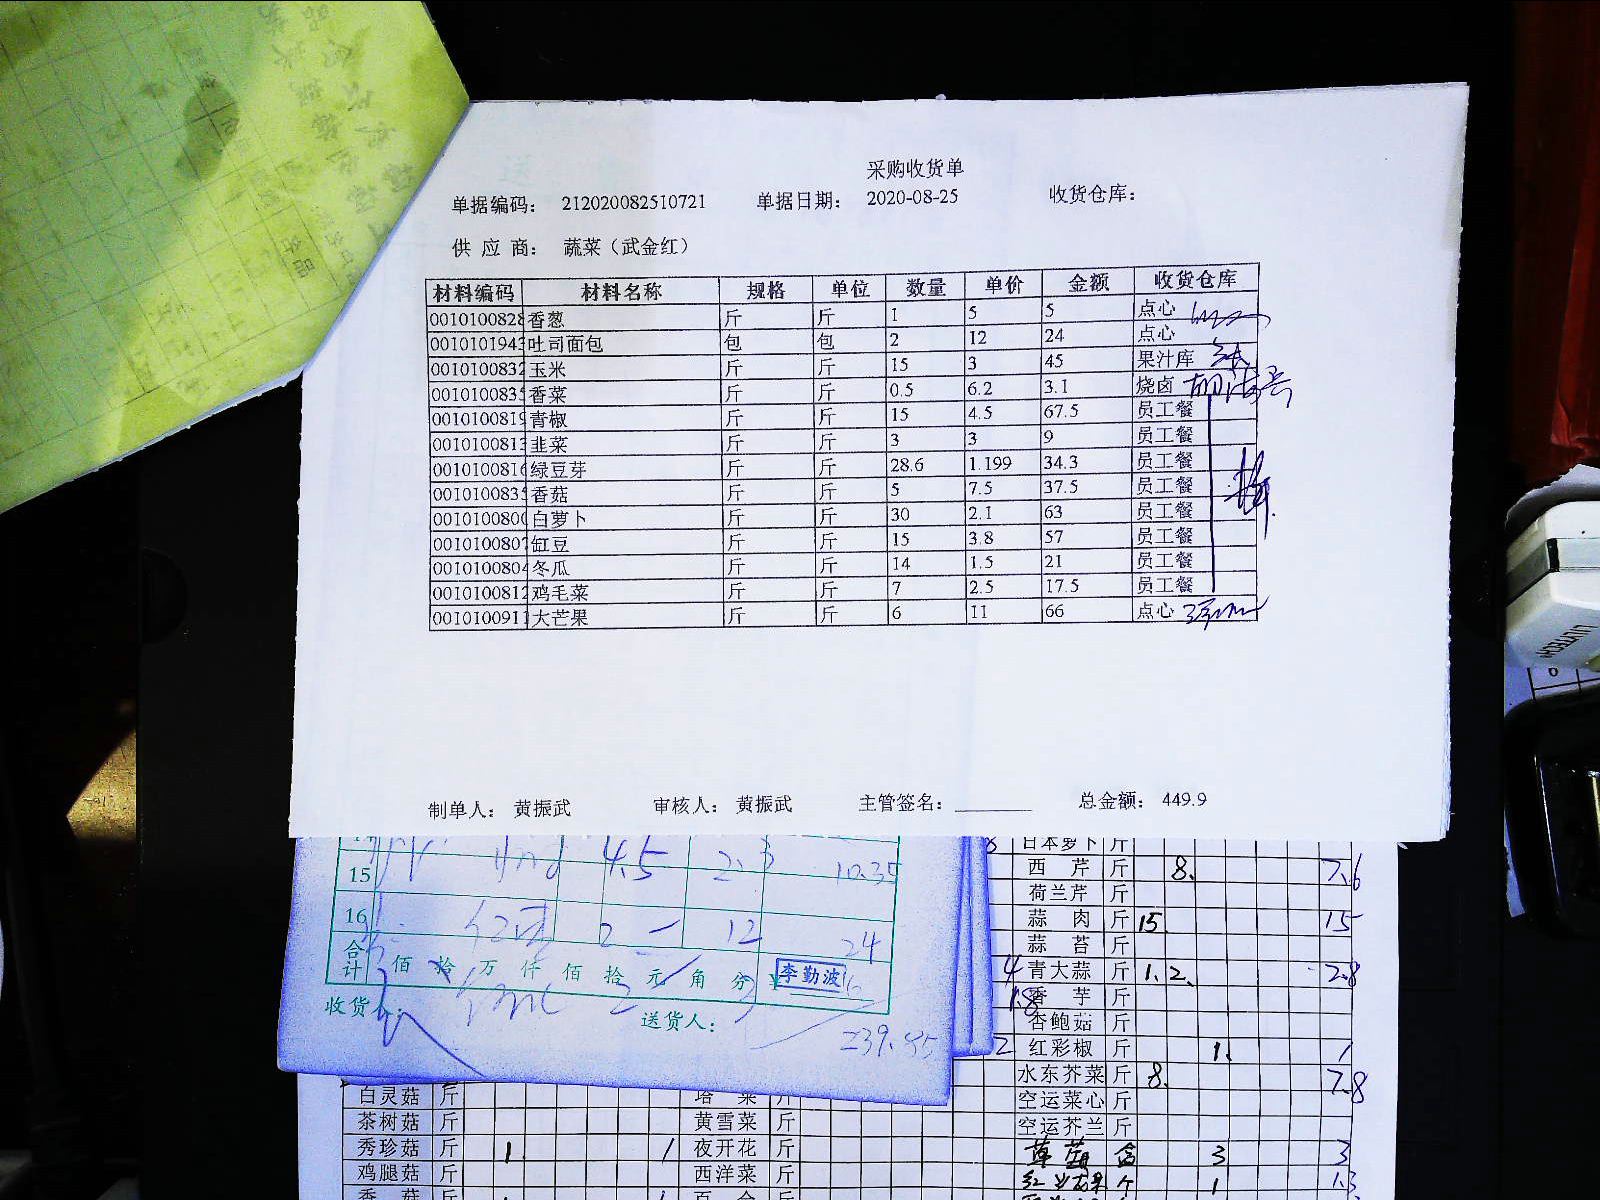 采购收货单
单据编码: 212020082510721 单据日期: 2020-08-25 收货仓库:
供 应 商: 蔬菜(武金红)
材料编码 材料名称 规格 单位 数量 单价 金额 收货仓库
0010100828 香葱 斤 斤 1 5 5 点心
0010101943 吐司面包 包 包 2 12 24 点心
0010100832 玉米 斤 斤 15 3 45 果汁库
0010100835 香菜 斤 斤 0.5 6.2 3.1 烧卤
0010100819 青椒 斤 斤 15 4.5 67.5 员工餐
0010100813 韭菜 斤 斤 3 3 9 员工餐
0010100816 绿豆芽 斤 斤 28.6 1.199 34.3 员工餐
0010100835 香菇 斤 斤 5 7.5 37.5 员工餐
001010080 白萝卜 斤 斤 30 2.1 63 员工餐
0010100807 缸豆 斤 斤 15 3.8 57 员工餐
0010100804 冬瓜 斤 斤 14 1.5 21 员工餐
0010100812 鸡毛菜 斤 斤 7 2.5 17.5 员工餐
0010100911 大芒果 斤 斤 6 11 66 点心
制单人: 黄振武 审核人: 黄振武 主管签名: 总金额: 449.9
15 4.5 2.3 10.35
16 2 12 24
合计 佰 拾 万 仟 佰 拾 元 角 分 李勤波
收货人: 送货人:
239.85
日本萝卜 斤
西 芹 斤 8. 7.6
荷兰芹 斤
蒜 肉 斤 15 15
蒜 苔 斤
青大蒜 斤 1. 2. 2.8
香 芋 斤
杏鲍菇 斤
红彩椒 斤 1. 1
水东芥菜 斤 8. 7.8
白灵菇 斤 塔 菜 斤 空运菜心 斤
茶树菇 斤 黄雪菜 斤 空运芥兰 斤
秀珍菇 斤 1. 1 夜开花 斤 草菇 盒 3 3
鸡腿菇 斤 西洋菜 斤 1 1.3
香 菇 斤 百 合 斤